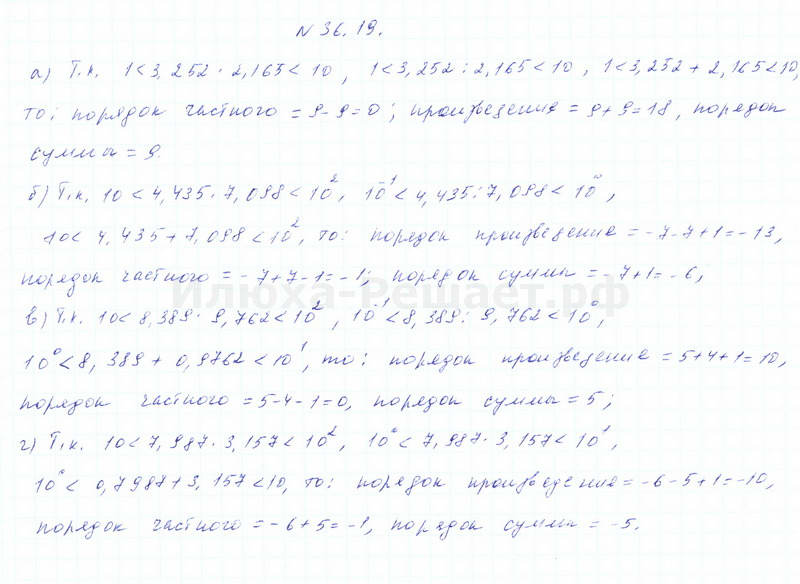 № 36.19.
а) Т.к. 1<3,252 · 2,165<10, 1<3,252 : 2,165<10, 1<3,252 + 2,165<10,
то: порядок частного = 9-9=0; произведения = 9+9=18, порядок
суммы = 9.
б) Т.к. 10 < 4,435 · 7,098 < 10², 10⁻¹ < 4,435 : 7,098 < 10⁰,
10 < 4,435 + 7,098 < 10², то: порядок произведение = -7-7+1=-13,
порядок частного = -7+7-1=-1; порядок суммы = -7+1=-6;
Илюха-Решает.рф
в) Т.к. 10 < 8,389 · 9,762 < 10², 10⁻¹ < 8,389 : 9,762 < 10⁰,
10⁰ < 8,389 + 0,9762 < 10¹, то: порядок произведение = 5+4+1=10,
порядок частного = 5-4-1=0, порядок суммы = 5;
г) Т.к. 10 < 7,987 · 3,157 < 10², 10⁰ < 7,987 · 3,157 < 10¹,
10⁰ < 0,7987+3,157 <10, то: порядок произведение = -6-5+1=-10,
порядок частного = -6+5=-1, порядок суммы = -5.